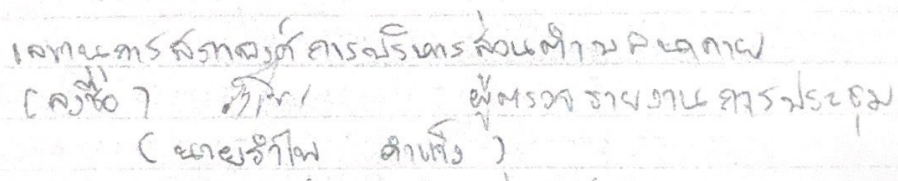 เลขานุการสภาองค์การบริหารส่วนตำบล
(ลงชื่อ) ผู้ตรวจรายงานการประชุม
(นายรำไพ )